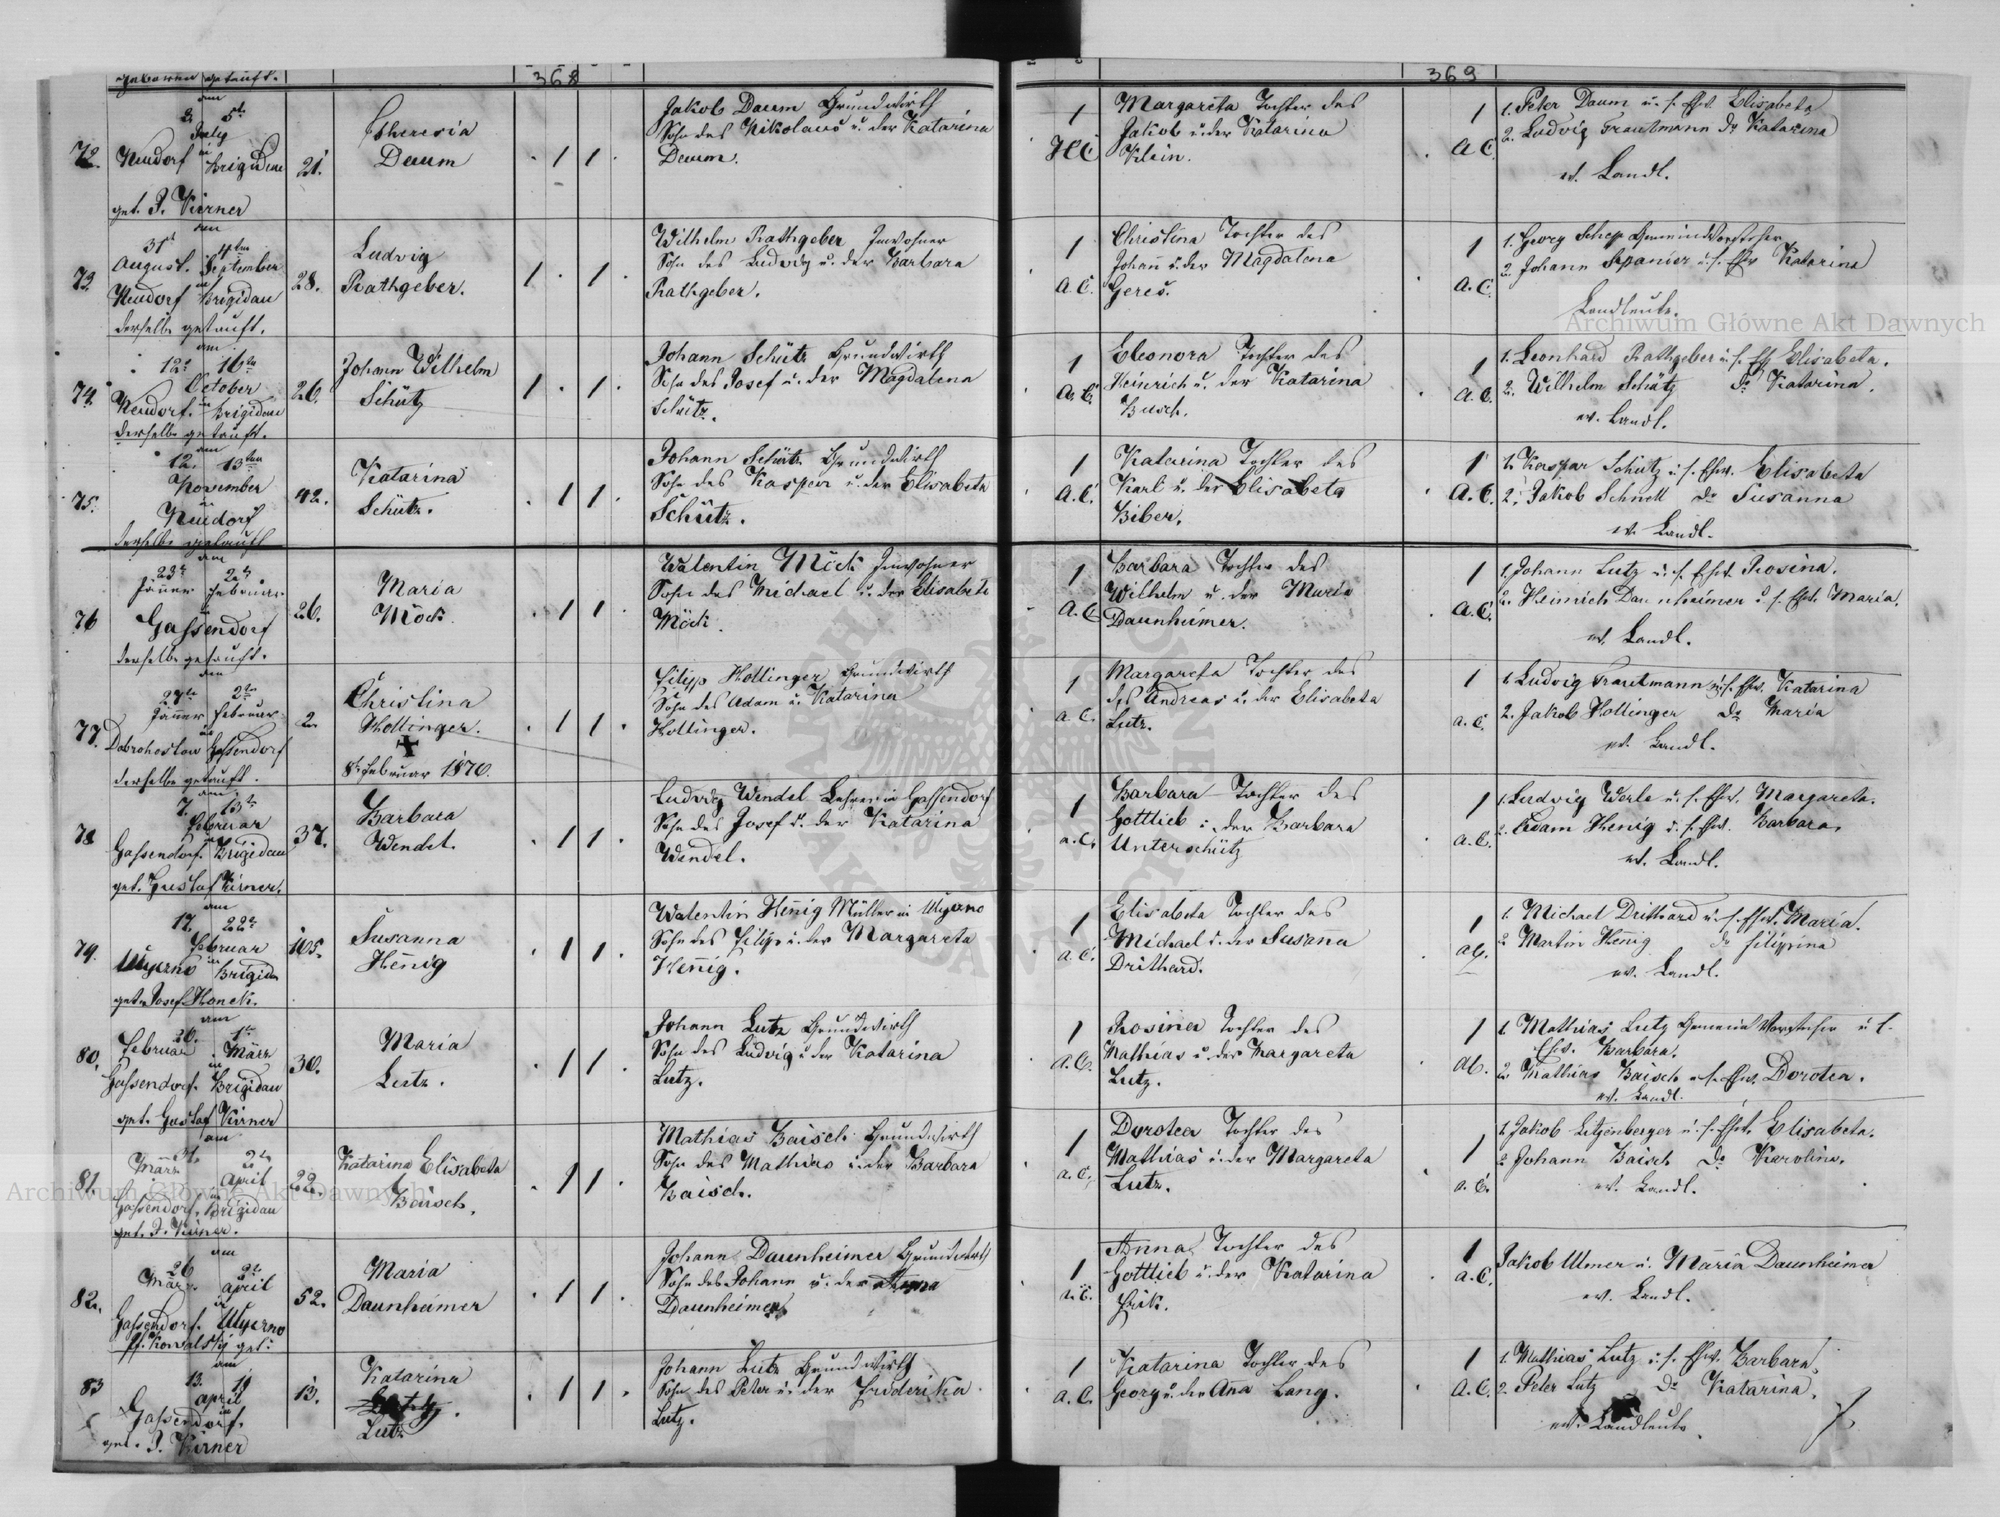 geboren getauft.
368
369
am
2. 5t.
July
in
72. Neudorf Brigidau 21.
get. J. Kirner
Theresia
Daum
. 1 1 .
Jakob Daum Grundwirth
Sohn des Nikolaus u. der Katarina
Daum.
1
Margareta Tochter des
Jakob u. der Katarina
Klein.
1
A C.
1. Peter Daum u. s. Ehw. Elisabeta
2. Ludwig Trautmann do Katarina
ev. Landl.
31t 4ten
August. September
in
73. Neudorf Brigidau 28.
derselbe getauft.
Ludwig
Rathgeber.
1 . 1
Wilhelm Rathgeber Inwohner
Sohn des Ludwig u. der Barbara
Rathgeber.
1
A C.
Christina Tochter des
Johann u. der Magdalena
Geres.
1
A. C.
1. Georg Schep Gemeindvorsteher
2. Johann Spanier u. s. Ehw Katarina
Landleute.
Archiwum Główne Akt Dawnych
am
12t 16ten
October
in
74. Neudorf. Brigidau 26.
derselbe getauft.
Johann Wilhelm
Schütz
1 . 1 .
Johann Schütz Grundwirth
Sohn des Josef u. der Magdalena
Schütz.
1
A. C.
Eleonora Tochter des
Heinrich u. der Katarina
Busch.
1
A. C.
1. Leonhard Rathgeber u. s. Ehw Elisabeta.
2. Wilhelm Schütz do Katarina.
ev. Landl.
am
12. 13ten
November
in
75. Neudorf 42.
derselbe getauft
Katarina
Schütz.
. 1 1 .
Johann Schütz Grundwirth
Sohn des Kaspar u. der Elisabeta
Schütz.
1
A. C.
Katarina Tochter des
Karl u. der Elisabeta
Biber.
1
A. C.
1. Kaspar Schütz u. s. Ehw. Elisabeta
2. Jakob Schnell do Susanna
ev. Landl.
am
23t 2t
Jänner Februar
in
76 Gassendorf 26.
derselbe getauft.
Maria
Möck
. 1 1 .
Valentin Möck Inwohner
Sohn des Michael u. der Elisabeta
Möck.
1
A. C
Barbara Tochter des
Wilhelm u. der Maria
Daunheimer.
1
A. C.
1. Johann Lutz u. s. Ehw. Rosina.
2. Heinrich Daunheimer u. s. Ehw. Maria.
ev. Landl.
den
27te 2ten
Jänner Februar
in
77. Dobrohostow Gassendorf 2.
derselbe getauft.
Christina
Hollinger.
8t Februar 1870.
. 1 1 .
Filipp Hollinger Grundwirth
Sohn des Adam u. Katarina
Hollinger.
1
a. C.
Margareta Tochter des
des Andreas u. der Elisabeta
Lutz.
1
a. C.
1. Ludwig Trautmann u. s. Ehw. Katarina
2. Jakob Hollinger do Maria
ev. Landl.
am
7. 13t
Februar
in
78 Gassendorf. Brigidau 37.
get. Gustaf Kirner.
Barbara
Wendel.
. 1 1 .
Ludwig Wendel Lehrer in Gassendorf
Sohn des Josef u. der Katarina
Wendel.
1
a. C.
Barbara Tochter des
Gottlieb u. der Barbara
Unterschütz
1
a. C.
1. Ludwig Werle u. s. Ehw. Margareta.
2. Adam Henig u. s. Ehw. Barbara.
ev. Landl.
am
17. 22t
Februar
in
79. Ugerno Brigidau 105.
get. Josef Honek.
Susanna
Hennig
. 1 1 .
Valentin Hennig Müller in Ugerno
Sohn des Filipp u. der Margareta
Hennig.
1
a. C.
Elisabeta Tochter des
Michael u. der Susanna
Drithard.
1
1. Michael Drithard u. s. Ehw. Maria.
2 Martin Hennig do Filippina
ev. Landl.
am
26. 1te
Februar März
in
80. Gassendorf. Brigidau 30.
get. Gustaf Kirner
Maria
Lutz.
. 1 1 .
Johann Lutz Grundwirth
Sohn des Ludwig u. der Katarina
Lutz.
1
a. C.
Rosina Tochter des
Mathias u. der Margareta
Lutz.
1
AC.
1. Mathias Lutz Gemeind Vorsteher u. s.
Ehw. Barbara.
2. Mathias Baisch u. s. Ehw. Dorotea.
ev. Landl.
am
31. 2te
März April
in
81. Gassendorf. Brigidau 22.
get. J. Kirner.
Archiwum Główne Akt Dawnych
Katarina Elisabeta
Baisch.
. 1 1 .
Mathias Baisch Grundwirth
Sohn des Mathias u. der Barbara
Baisch.
1
a. C.
Dorotea Tochter des
Mathias u. der Margareta
Lutz.
1
a. C.
1. Jakob Litzenberger u. s. Ehw. Elisabeta.
2 Johann Baisch do Karolina.
ev. Landl.
am
26 2t
März. April
in
82. Gassendorf. Ugerno 52.
Pf. Kowalsky get.
Maria
Daunheimer
. 1 1 .
Johann Daunheimer Grundwirth
Sohn des Johann u. der Anna
Daunheimer
1
a. C.
Anna Tochter des
Gottlieb u. der Katarina
1
a. C.
Jakob Ulmer u. Maria Daunheimer
ev. Landl.
am
13. 19
April
in
83 Gassendorf. 13.
get. J. Kirner
Katarina
Lutz
. 1 1 .
Johann Lutz Grundwirth
Sohn des Peter u. der Friderika
Lutz.
1
a. C.
Katarina Tochter des
Georg u. der Anna Lang.
1
A. C.
1. Mathias Lutz u. s. Ehw. Barbara.
2. Peter Lutz do Katarina.
ev. Landleute.